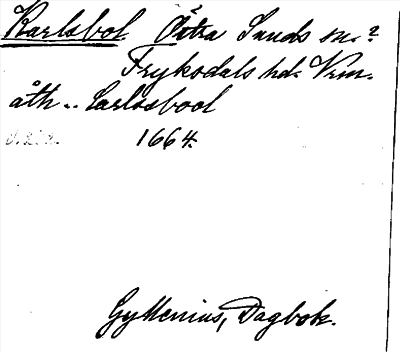 Karlsbol Östra Sunds sn.?
Frykodals hd. Vrm.
åth .. Carlssbool
1664.
Gyllenius, Dagbok.